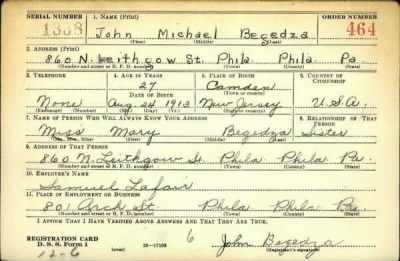 SERIAL NUMBER 1. NAME (Print) ORDER NUMBER
1338 John Michael Begedza 464
(First) (Middle) (Last)
2. ADDRESS (Print)
860 N. Leithgow St. Phila Phila Pa.
(Number and street or R. F. D. number) (Town) (County) (State)
3. TELEPHONE 4. AGE IN YEARS 5. PLACE OF BIRTH 6. COUNTRY OF CITIZENSHIP
27 Camden
DATE OF BIRTH (Town or county)
None Aug. 24 1913 New Jersey U.S.A.
(Exchange) (Number) (Mo.) (Day) (Yr.) (State or country)
7. NAME OF PERSON WHO WILL ALWAYS KNOW YOUR ADDRESS 8. RELATIONSHIP OF THAT PERSON
Miss Mary Begedza Sister
(Mr., Mrs., Miss) (First) (Middle) (Last)
9. ADDRESS OF THAT PERSON
860 N. Leithgow St. Phila Phila Pa.
(Number and street or R. F. D. number) (Town) (County) (State)
10. EMPLOYER'S NAME
Samuel Lafair
11. PLACE OF EMPLOYMENT OR BUSINESS
801 Arch St. Phila Phila Pa
(Number and street or R. F. D. number) (Town) (County) (State)
I AFFIRM THAT I HAVE VERIFIED ABOVE ANSWERS AND THAT THEY ARE TRUE.
REGISTRATION CARD
D. S. S. Form 1 (over) 16—17105 6 John Begedza
12-6 (Registrant's signature)